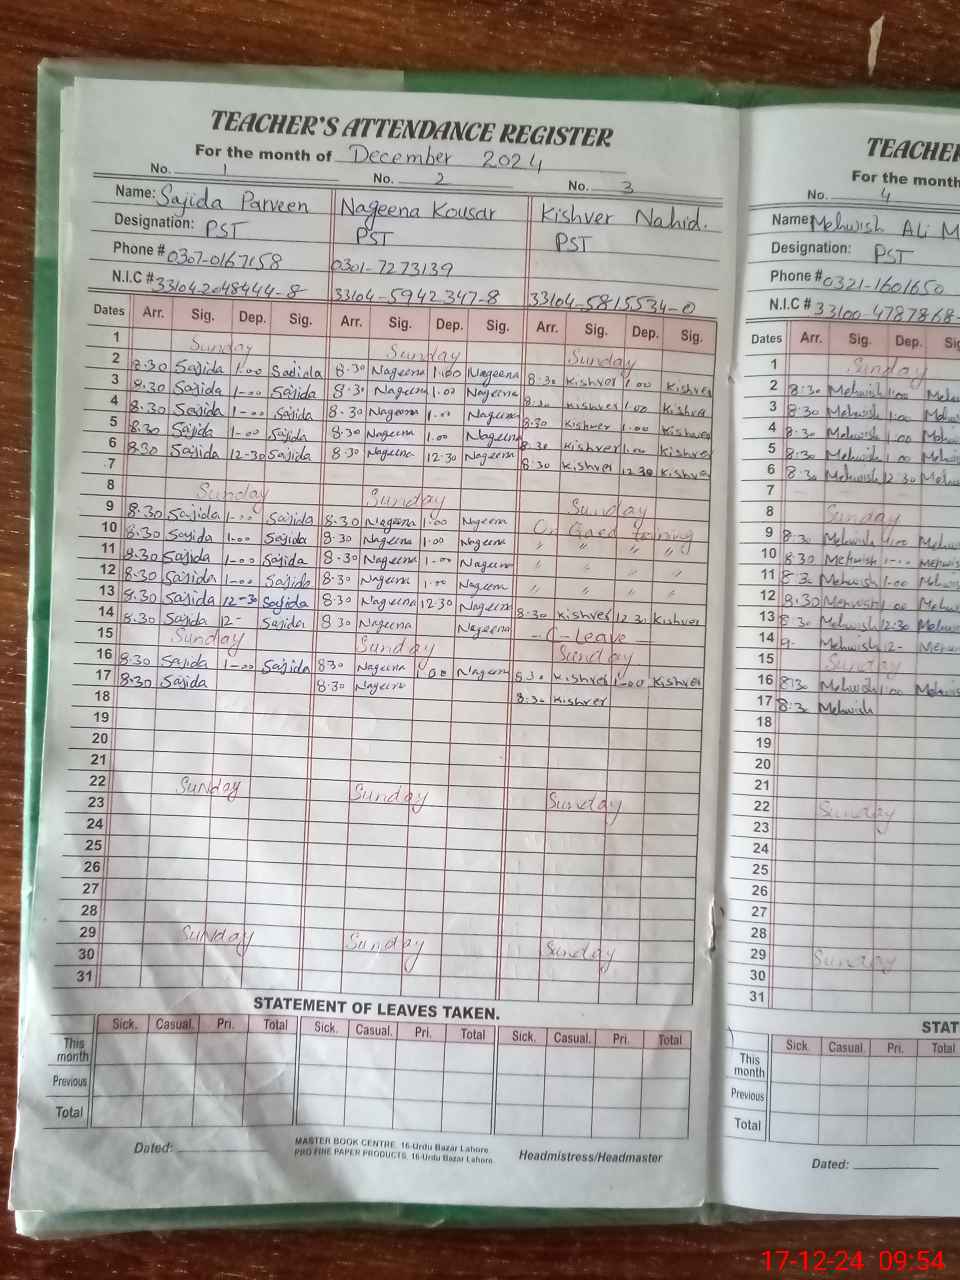 TEACHER'S ATTENDANCE REGISTER
For the month of December 2024
No. 1 No. 2 No. 3
Name: Sajida Parveen Nageena Kousar Kishver Nahid.
Designation: PST PST PST
Phone # 0307-0167158 0301-7273139
N.I.C # 33104-2048444-8 33104-5942347-8 33104-5815534-0
Dates Arr. Sig. Dep. Sig. Arr. Sig. Dep. Sig. Arr. Sig. Dep. Sig.
1 Sunday Sunday Sunday
2 8:30 Sajida 1:00 Sajida 8:30 Nageena 1:00 Nageena 8:30 Kishver 1:00 Kishver
3 8:30 Sajida 1-00 Sajida 8:30 Nageena 1:00 Nageena 8:30 Kishver 1:00 Kishver
4 8:30 Sajida 1-00 Sajida 8:30 Nageena 1:00 Nageena 8:30 Kishver 1:00 Kishver
5 8:30 Sajida 1-00 Sajida 8:30 Nageena 1:00 Nageena 8:30 Kishver 1:00 Kishver
6 8:30 Sajida 12-30 Sajida 8:30 Nageena 12:30 Nageena 8:30 Kishver 12:30 Kishver
7
8 Sunday Sunday Sunday
9 8:30 Sajida 1-00 Sajida 8:30 Nageena 1:00 Nageena On
10 8:30 Sajida 1:00 Sajida 8:30 Nageena 1:00 Nageena " " "
11 8:30 Sajida 1-00 Sajida 8:30 Nageena 1-00 Nageena " " " "
12 8:30 Sajida 1-00 Sajida 8:30 Nageena 1:00 Nageena " " " "
13 8:30 Sajida 12-30 Sajida 8:30 Nageena 12:30 Nageena 8:30 Kishver 12:30 Kishver
14 8:30 Sajida 12- Sajida 8:30 Nageena Nageena - C - Leave
15 Sunday Sunday Sunday
16 8:30 Sajida 1-00 Sajida 8:30 Nageena 1:00 Nageena 8:30 Kishver 1-00 Kishver
17 8:30 Sajida 8:30 Nageena 8:30 Kishver
18
19
20
21
22 Sunday Sunday Sunday
23
24
25
26
27
28
29 Sunday Sunday Sunday
30
31
STATEMENT OF LEAVES TAKEN.
Sick. Casual. Pri. Total Sick. Casual. Pri. Total Sick. Casual. Pri. Total
This month
Previous
Total
Dated:
MASTER BOOK CENTRE. 16-Urdu Bazar Lahore.
PRO FINE PAPER PRODUCTS. 16-Urdu Bazar Lahore.
Headmistress/Headmaster
TEACHER
For the month
No. 4
Name: Mehwish Ali M
Designation: PST
Phone # 0321-1601650
N.I.C # 33100-4787868-
Dates Arr. Sig. Dep. Sig
1 Sunday
2 8:30 Mehwish 1:00
3 8:30 Mehwish 1:00
4 8:30 Mehwish 1:00
5 8:30 Mehwish 1:00
6 8:30 Mehwish 12:30
7
8 Sunday
9 8:30 Mehwish 1:00
10 8:30 Mehwish 1-00
11 8:30 Mehwish 1-00
12 8:30 Mehwish 1:00
13 8:30 Mehwish 12:30
14 9- Mehwish 12-
15 Sunday
16 8:30 Mehwish 1:00
17 8:30 Mehwish
18
19
20
21
22 Sunday
23
24
25
26
27
28
29 Sunday
30
31
STAT
Sick. Casual. Pri. Total
This month
Previous
Total
Dated:
17-12-24 09:54